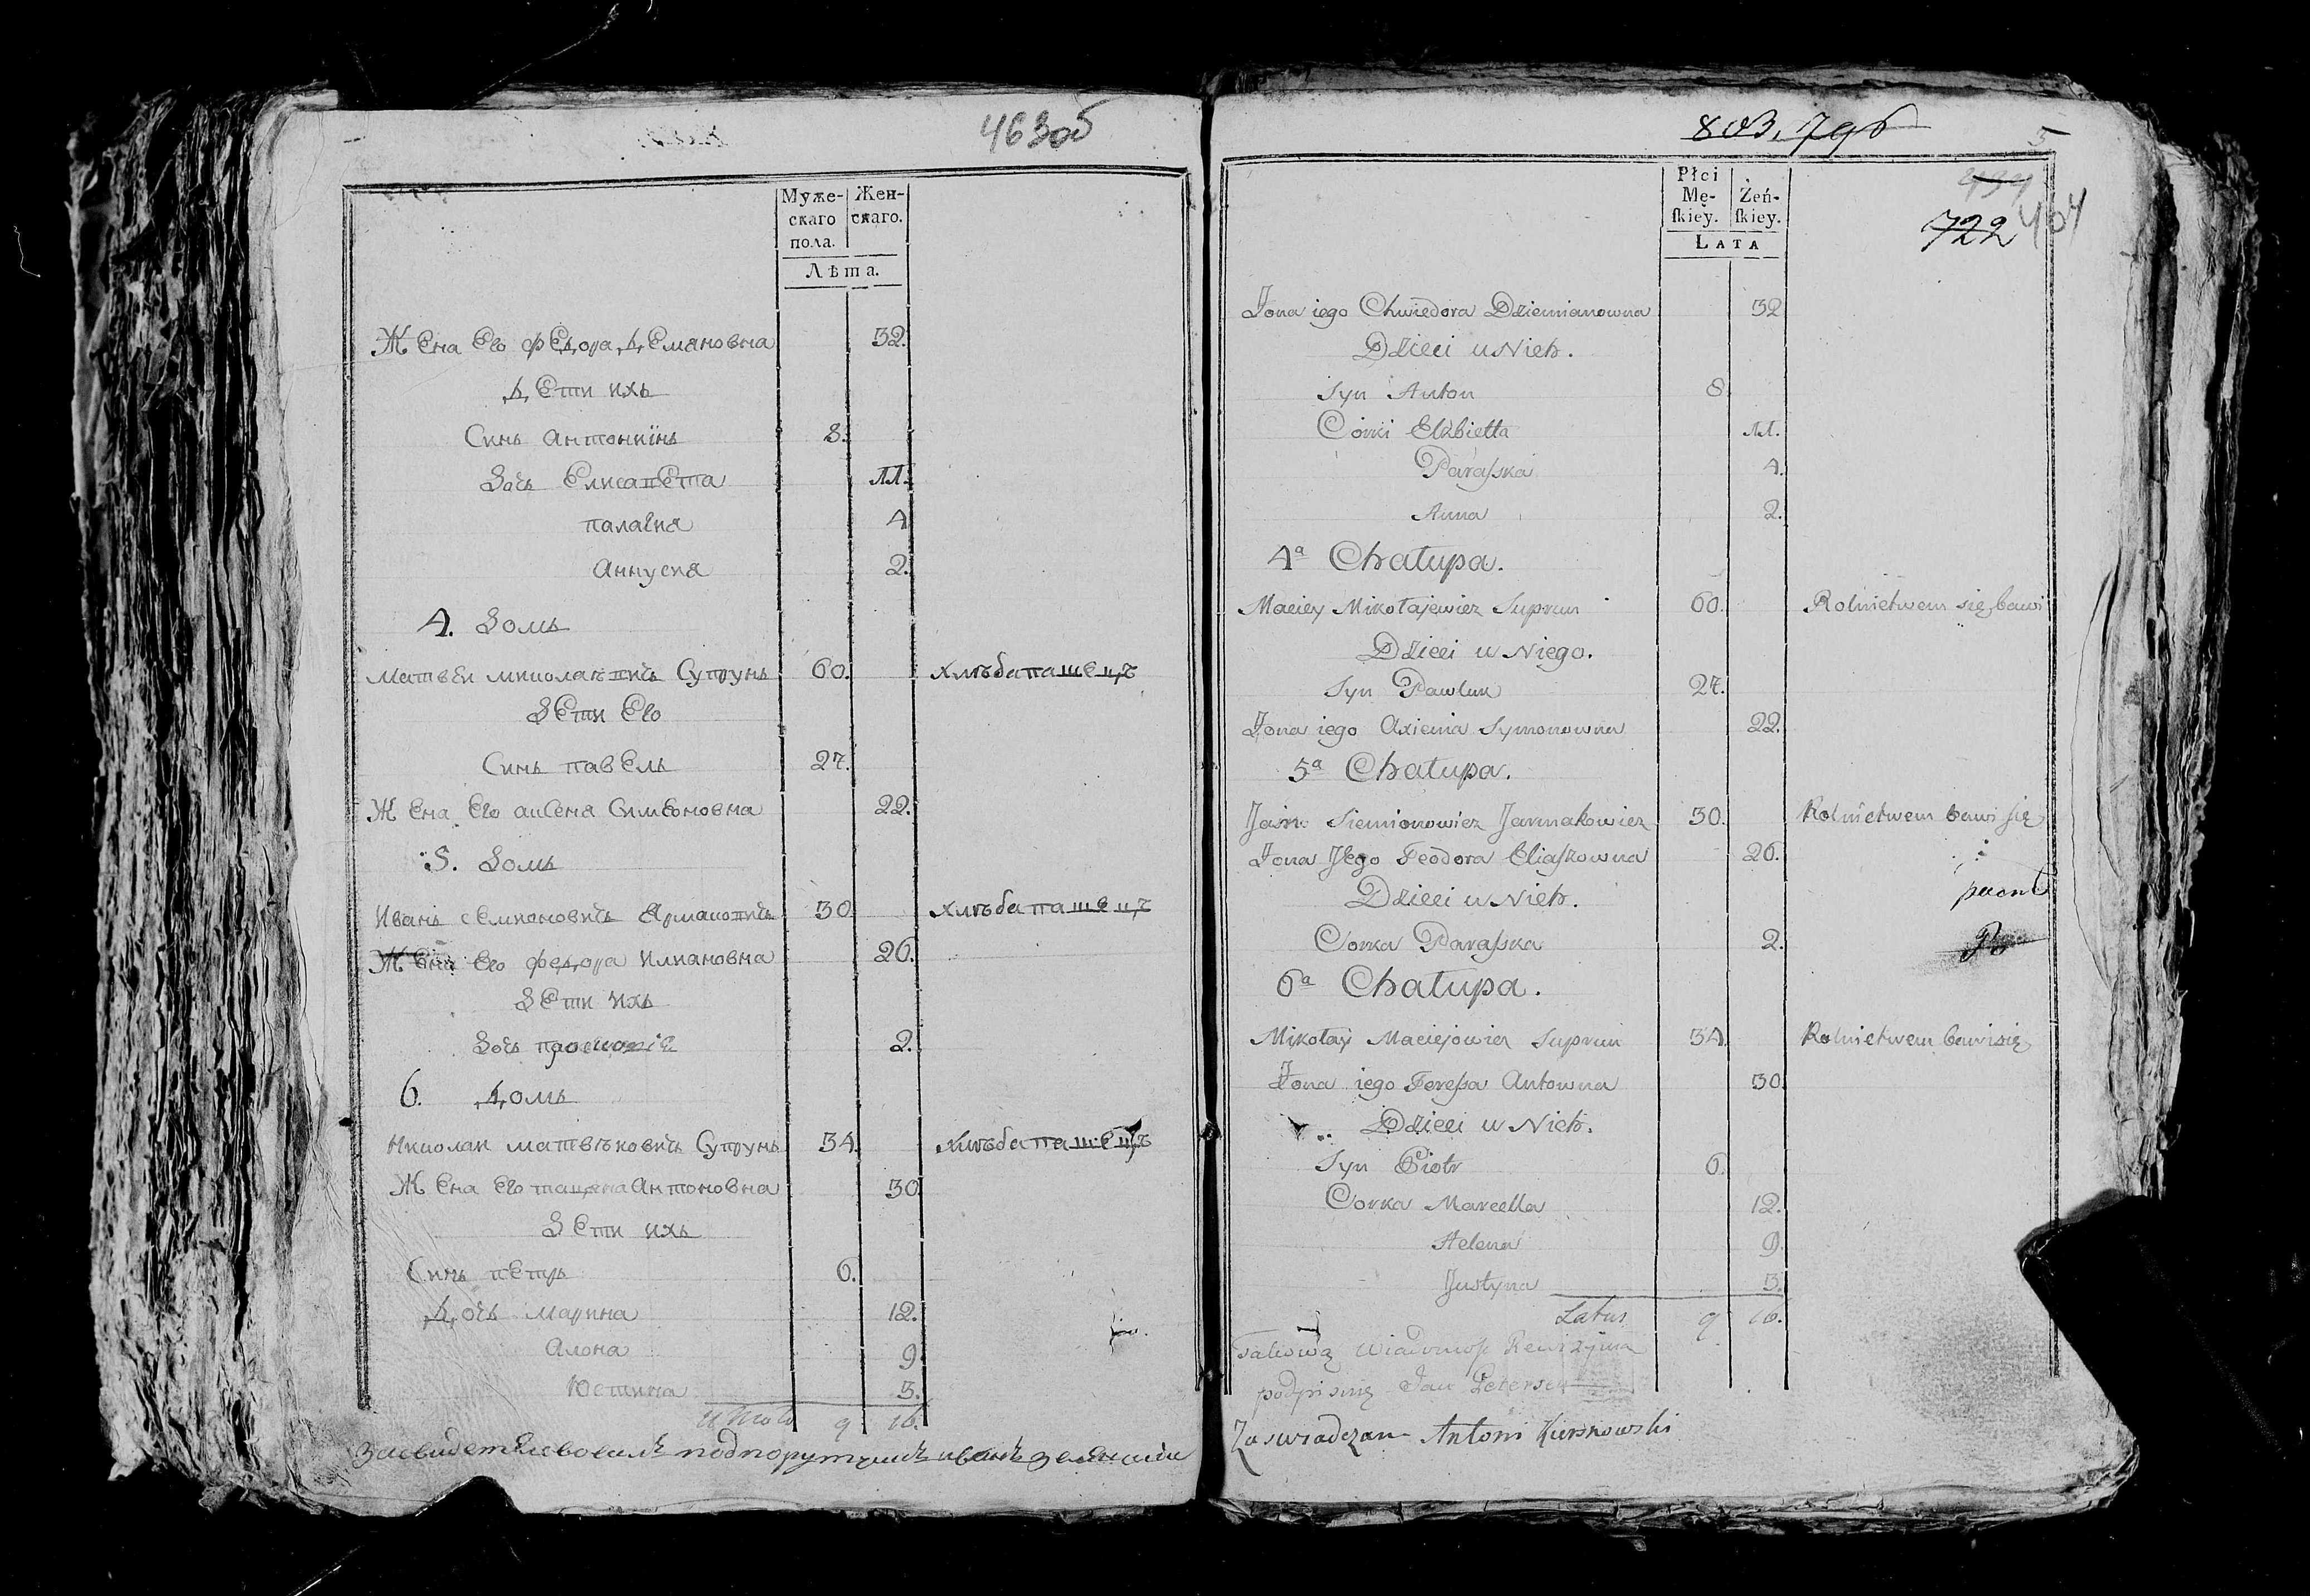 463об
Муже-
скаго
пола.
Жен-
скаго.
Лѣта.
Жена Его фЕдора дЕмяновна 32.
дЕти ихъ
Синъ антонкiнъ 8.
дочъ ЕлисапЕта 11.
палагия 4
аннуся 2.
4. домъ
матвЕи миколаевичъ Супрунъ 60. хлѣбапашецъ
дЕти Его
Синъ павЕлъ 27.
Жена Его аксеня Симеоновна 22.
5. домъ
Иванъ сЕмионовичъ Ярмаковичъ 30. хлѣбапашецъ
Жена Его федора илиановна 26.
дЕти ихъ
дочъ 2.
6. домъ
Николаи матвѣновичъ Супрунъ 34. хлѣбапашецъ
Жена Его антоновна 30
дЕти ихъ
Синъ пЕтръ 6.
дочъ марина 12.
алона 9
Юстина 3.
итого 9 16.
Засвидетелвовалъ подпорутчикъ иванъ
803. 796
Płci
Mę-
ſkiey.
Żeń-
ſkiey.
LATA
722
Żona iego Chwiedora Dziemianowna 32
Dzieci u Nich.
Syn Anton 8
Córki Elżbietta 11.
Paraſska 4.
Anna 2.
4a Chałupa.
Maciey Mikołajewicz Suprun 60. Rolnictwem się bawi
Dzieci u Niego.
Syn Pawluk 27.
Żona iego Axienia Symonowna 22.
5a Chałupa.
Jan Siemionowicz Jarmakowicz 30. Rolnictwem bawi ſię
Żona Jego Teodora Eliaſzowna 26.
Dzieci u Nich.
Corka Paraſska 2.
6a Chałupa.
Mikołay Maciejowicz Suprun 34 Rolnictwem bawi się
Żona iego Tereſsa Antowna 30
Dzieci u Nich.
Syn Piotr 6.
Corka Marcella 12.
Helena 9.
Justyna 3.
Latus 9 16.
Takową Wiadomość Rewizyjna
podpisuię Jan
Zaswiadczam Antoni Kurkowski